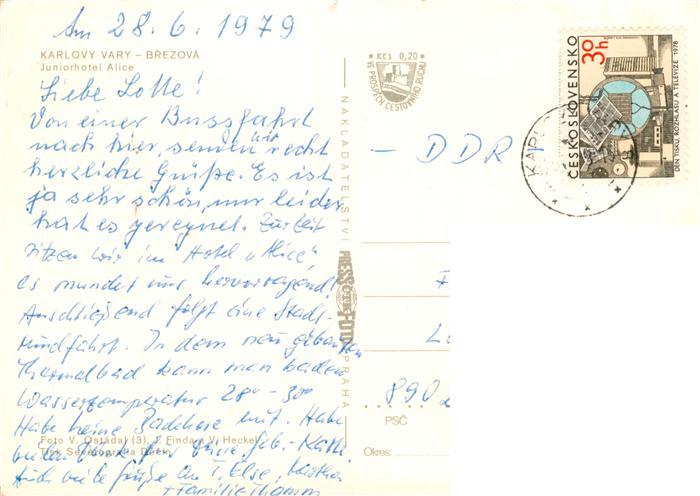 Am 28.6.1979
KARLOVY VARY – BŘEZOVÁ
Juniorhotel Alice
Liebe Lotte!
Von einer Bussfahrt
nach hier, senden wir recht
herzliche Grüße. Es ist
ja sehr schön, nur leider
hat es geregnet. Zur Zeit
sitzen wir im Hotel "Alice"
es mundet uns hervorragend!
Anschließend folgt eine Stadt-
rundfahrt. In dem neu gebauten
Thermalbad kann man baden
Wassertemperatur 28° - 30°
Habe keine Badehose mit. Habe
vielen Dank für Deine
Foto V. Ostádal (3), J. Finda a V. Heckel
Tisk Severografia Děčín
Auch viele Grüße an T. Else, Martha
+ Familie Thomm
NAKLADATELSTVÍ PRESSFOTO PRAHA
* Kčs 0,20 *
VE PROSPĚCH CESTOVNÍHO RUCHU
- DDR -
890
PSČ
Okres:
ČESKOSLOVENSKO
30h
DEN TISKU, ROZHLASU A TELEVIZE 1978
KARL